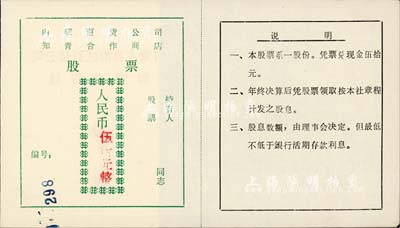 百货公司
知青合作商店
股票
人民币伍拾元整
股票
持有人
同志
编号：
298
说明
一、本股票系一股份。凭票兑现金伍拾
元。
二、年终决算后凭股票领取按本社章程
计发之股息。
三、股息数额，由理事会决定。但最低
不低于銀行活期存款利息。